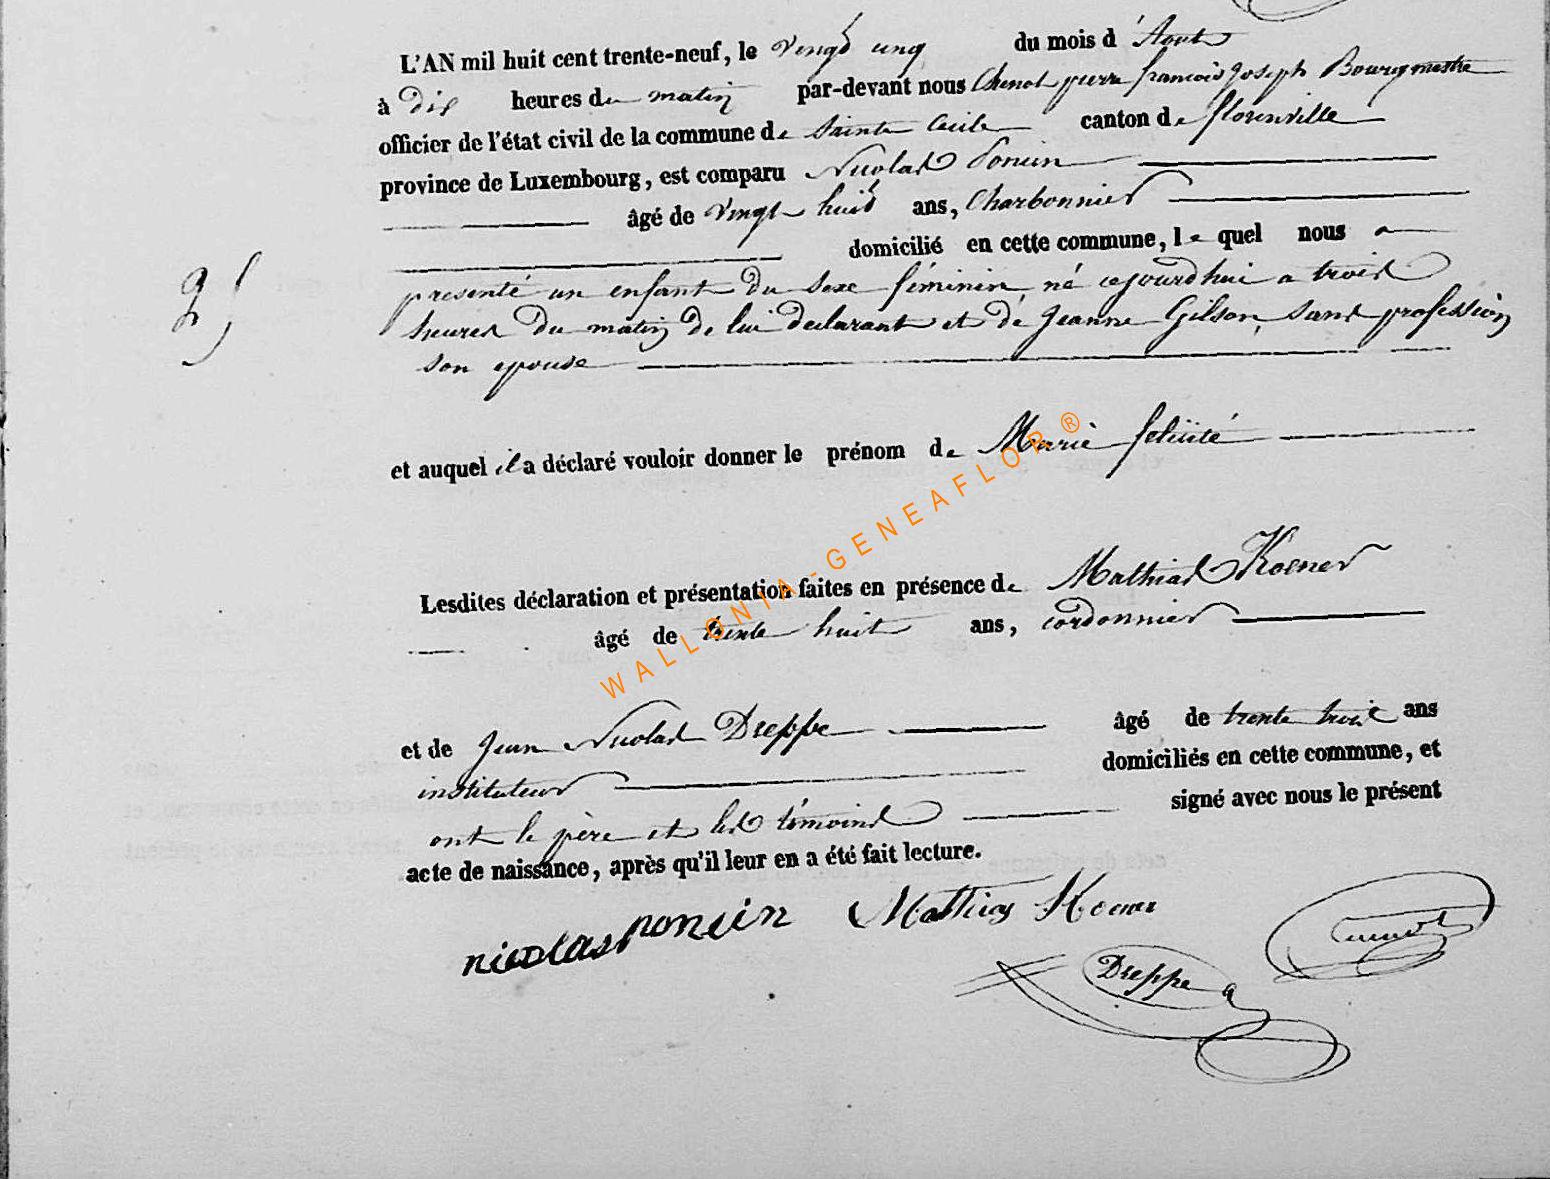 L'AN mil huit cent trente-neuf, le vingt unq du mois d'Aout
à dix heures de matin par-devant nous Chenot pierre francois Joseph Bourgmestre
officier de l'état civil de la commune de Sainte Cecile canton de florenville
province de Luxembourg, est comparu Nicolas Poncin
âgé de vingt huit ans, Charbonnier
domicilié en cette commune, le quel nous a
présenté un enfant du sexe féminin, né cejourd'hui a trois
heures du matin de lui declarant et de Jeanne Gilson, sans profession
son epouse
25
et auquel il a déclaré vouloir donner le prénom de Marie felicité
Lesdites déclaration et présentation faites en présence de Mathias Koener
âgé de trente huit ans, cordonnier
et de Jean Nicolas Dreppe âgé de trente trois ans
instituteur domiciliés en cette commune, et
ont le père et les témoins signé avec nous le présent
acte de naissance, après qu'il leur en a été fait lecture.
nicolas poncin Mathias Koener
Dreppe
WALLONIA-GENEAFLOR®